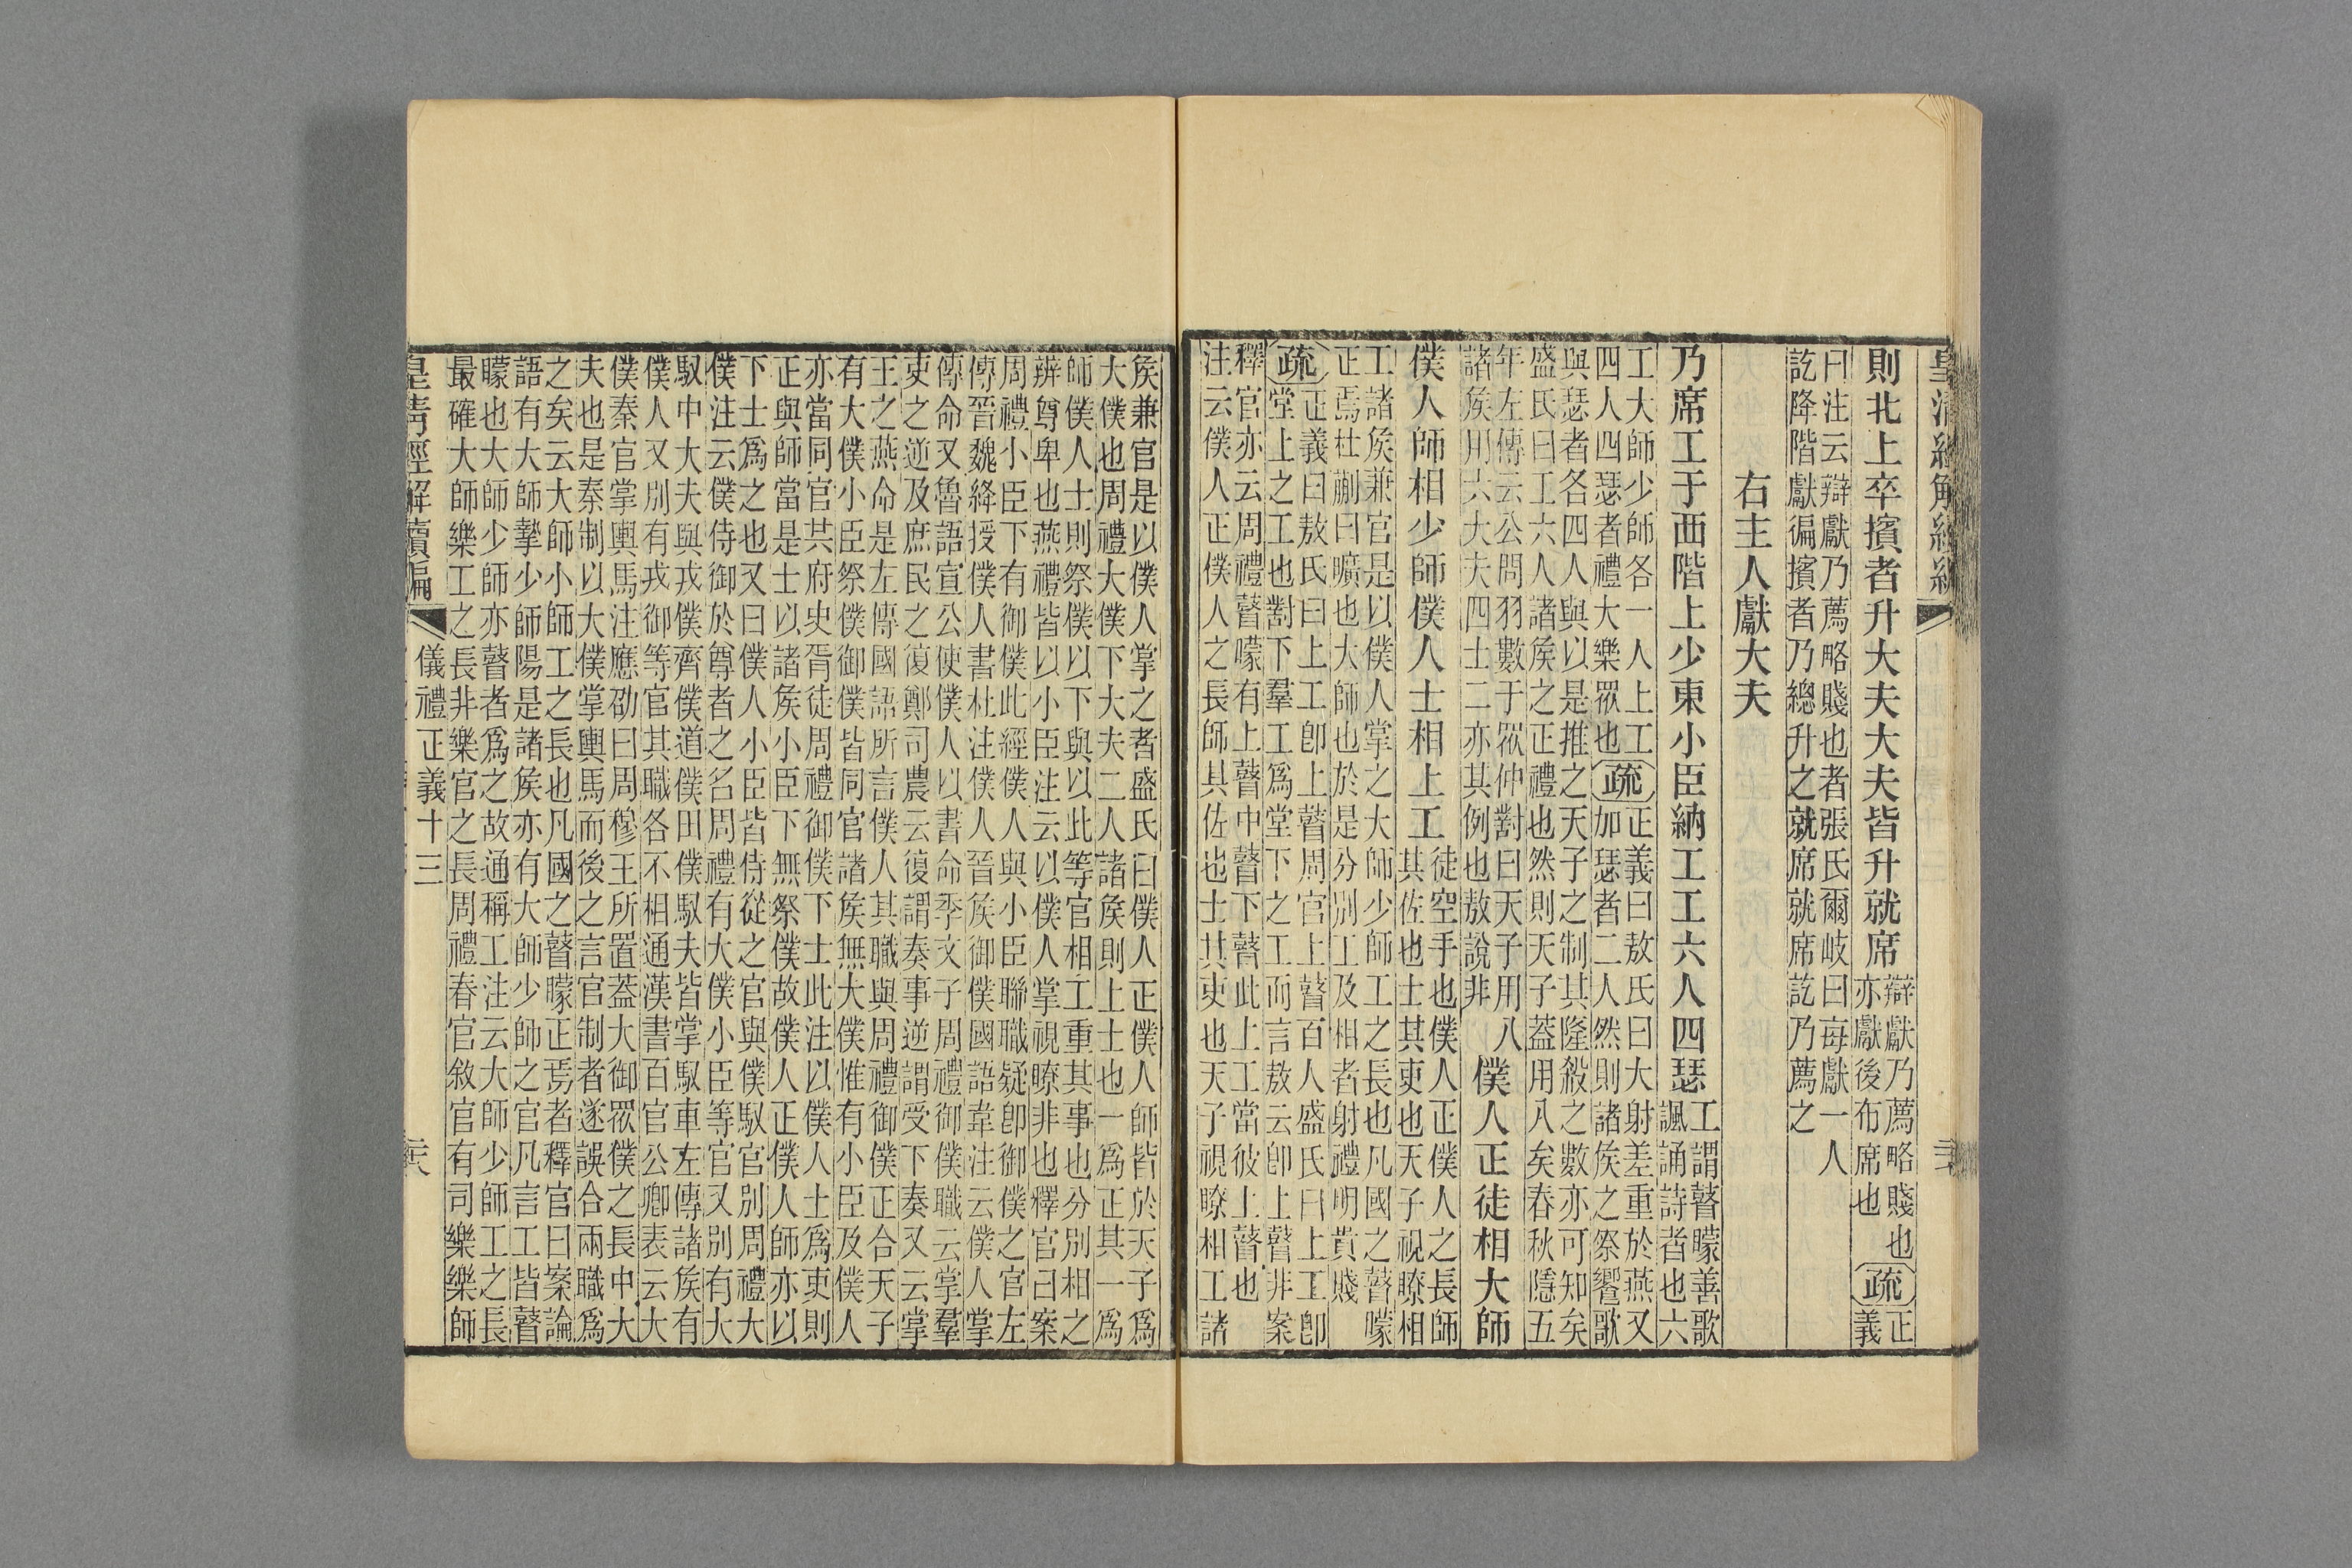 則北上卒擯者升大夫大夫皆升就席
辯獻乃薦略賤也
亦獻後布席也
疏
正
義
曰注云辯獻乃薦略賤也者張氏爾岐曰每獻一人
訖降階獻徧擯者乃總升之就席就席訖乃薦之
右主人獻大夫
乃席工于西階上少東小臣納工工六人四瑟
工謂瞽矇善歌
諷誦詩者也六
工大師少師各一人上工
四人四瑟者禮大樂眾也
疏
正義曰敖氏曰大射差重於燕又
加瑟者二人然則諸矦之祭饗歌
與瑟者各四人與以是推之天子之制其隆殺之數亦可知矣
盛氏曰工六人諸矦之正禮也然則天子蓋用八矣春秋隱五
年左傳云公問羽數于眾仲對曰天子用八
諸矦用六大夫四士二亦其例也敖說非
僕人正徒相大師
僕人師相少師僕人士相上工
徒空手也僕人正僕人之長師
其佐也士其吏也天子視瞭相
工諸矦兼官是以僕人掌之大師少師工之長也凡國之瞽矇
正焉杜蒯曰曠也大師也於是分別工及相者射禮明貴賤
疏
正義曰敖氏曰上工卽上瞽周官上瞽百人盛氏曰上工卽
堂上之工也對下羣工爲堂下之工而言敖云卽上瞽非案
釋官亦云周禮瞽矇有上瞽中瞽下瞽此上工當彼上瞽也
注云僕人正僕人之長師其佐也士其吏也天子視瞭相工諸
矦兼官是以僕人掌之者盛氏曰僕人正僕人師皆於天子爲
大僕也周禮大僕下大夫二人諸矦則上士也一爲正其一爲
師僕人士則祭僕以下與以此等官相工重其事也分別相之
辨尊卑也燕禮皆以小臣注云以僕人掌視瞭非也釋官曰案
周禮小臣下有御僕此經僕人與小臣聯職疑卽御僕之官左
傳晉魏絳授僕人書杜注僕人晉矦御僕國語韋注云僕人掌
傳命又魯語宣公使僕人以書命季文子周禮御僕職云掌羣
吏之逆及庶民之復鄭司農云復謂奏事逆謂受下奏又云掌
王之燕命是左傳國語所言僕人其職與周禮御僕正合天子
有大僕小臣祭僕御僕皆同官諸矦無大僕惟有小臣及僕人
亦當同官共府史胥徒周禮御僕下士此注以僕人士爲吏則
正與師當是士以諸矦小臣下無祭僕故僕人正僕人師亦以
下士爲之也又曰僕人小臣皆侍從之官與僕馭官別周禮大
僕注云僕侍御於尊者之名周禮有大僕小臣等官又別有大
馭中大夫與戎僕齊僕道僕田僕馭夫皆掌馭車左傳諸矦有
僕人又別有戎御等官其職各不相通漢書百官公卿表云大
僕秦官掌輿馬注應劭曰周穆王所置蓋大御眾僕之長中大
夫也是秦制以大僕掌輿馬而後之言官制者遂誤合兩職爲
之矣云大師小師工之長也凡國之瞽矇正焉者釋官曰案論
語有大師摯少師陽是諸矦亦有大師少師之官凡言工皆瞽
矇也大師少師亦瞽者爲之故通稱工注云大師少師工之長
最確大師樂工之長非樂官之長周禮春官敘官有司樂樂師
皇清經解續編
儀禮正義十三